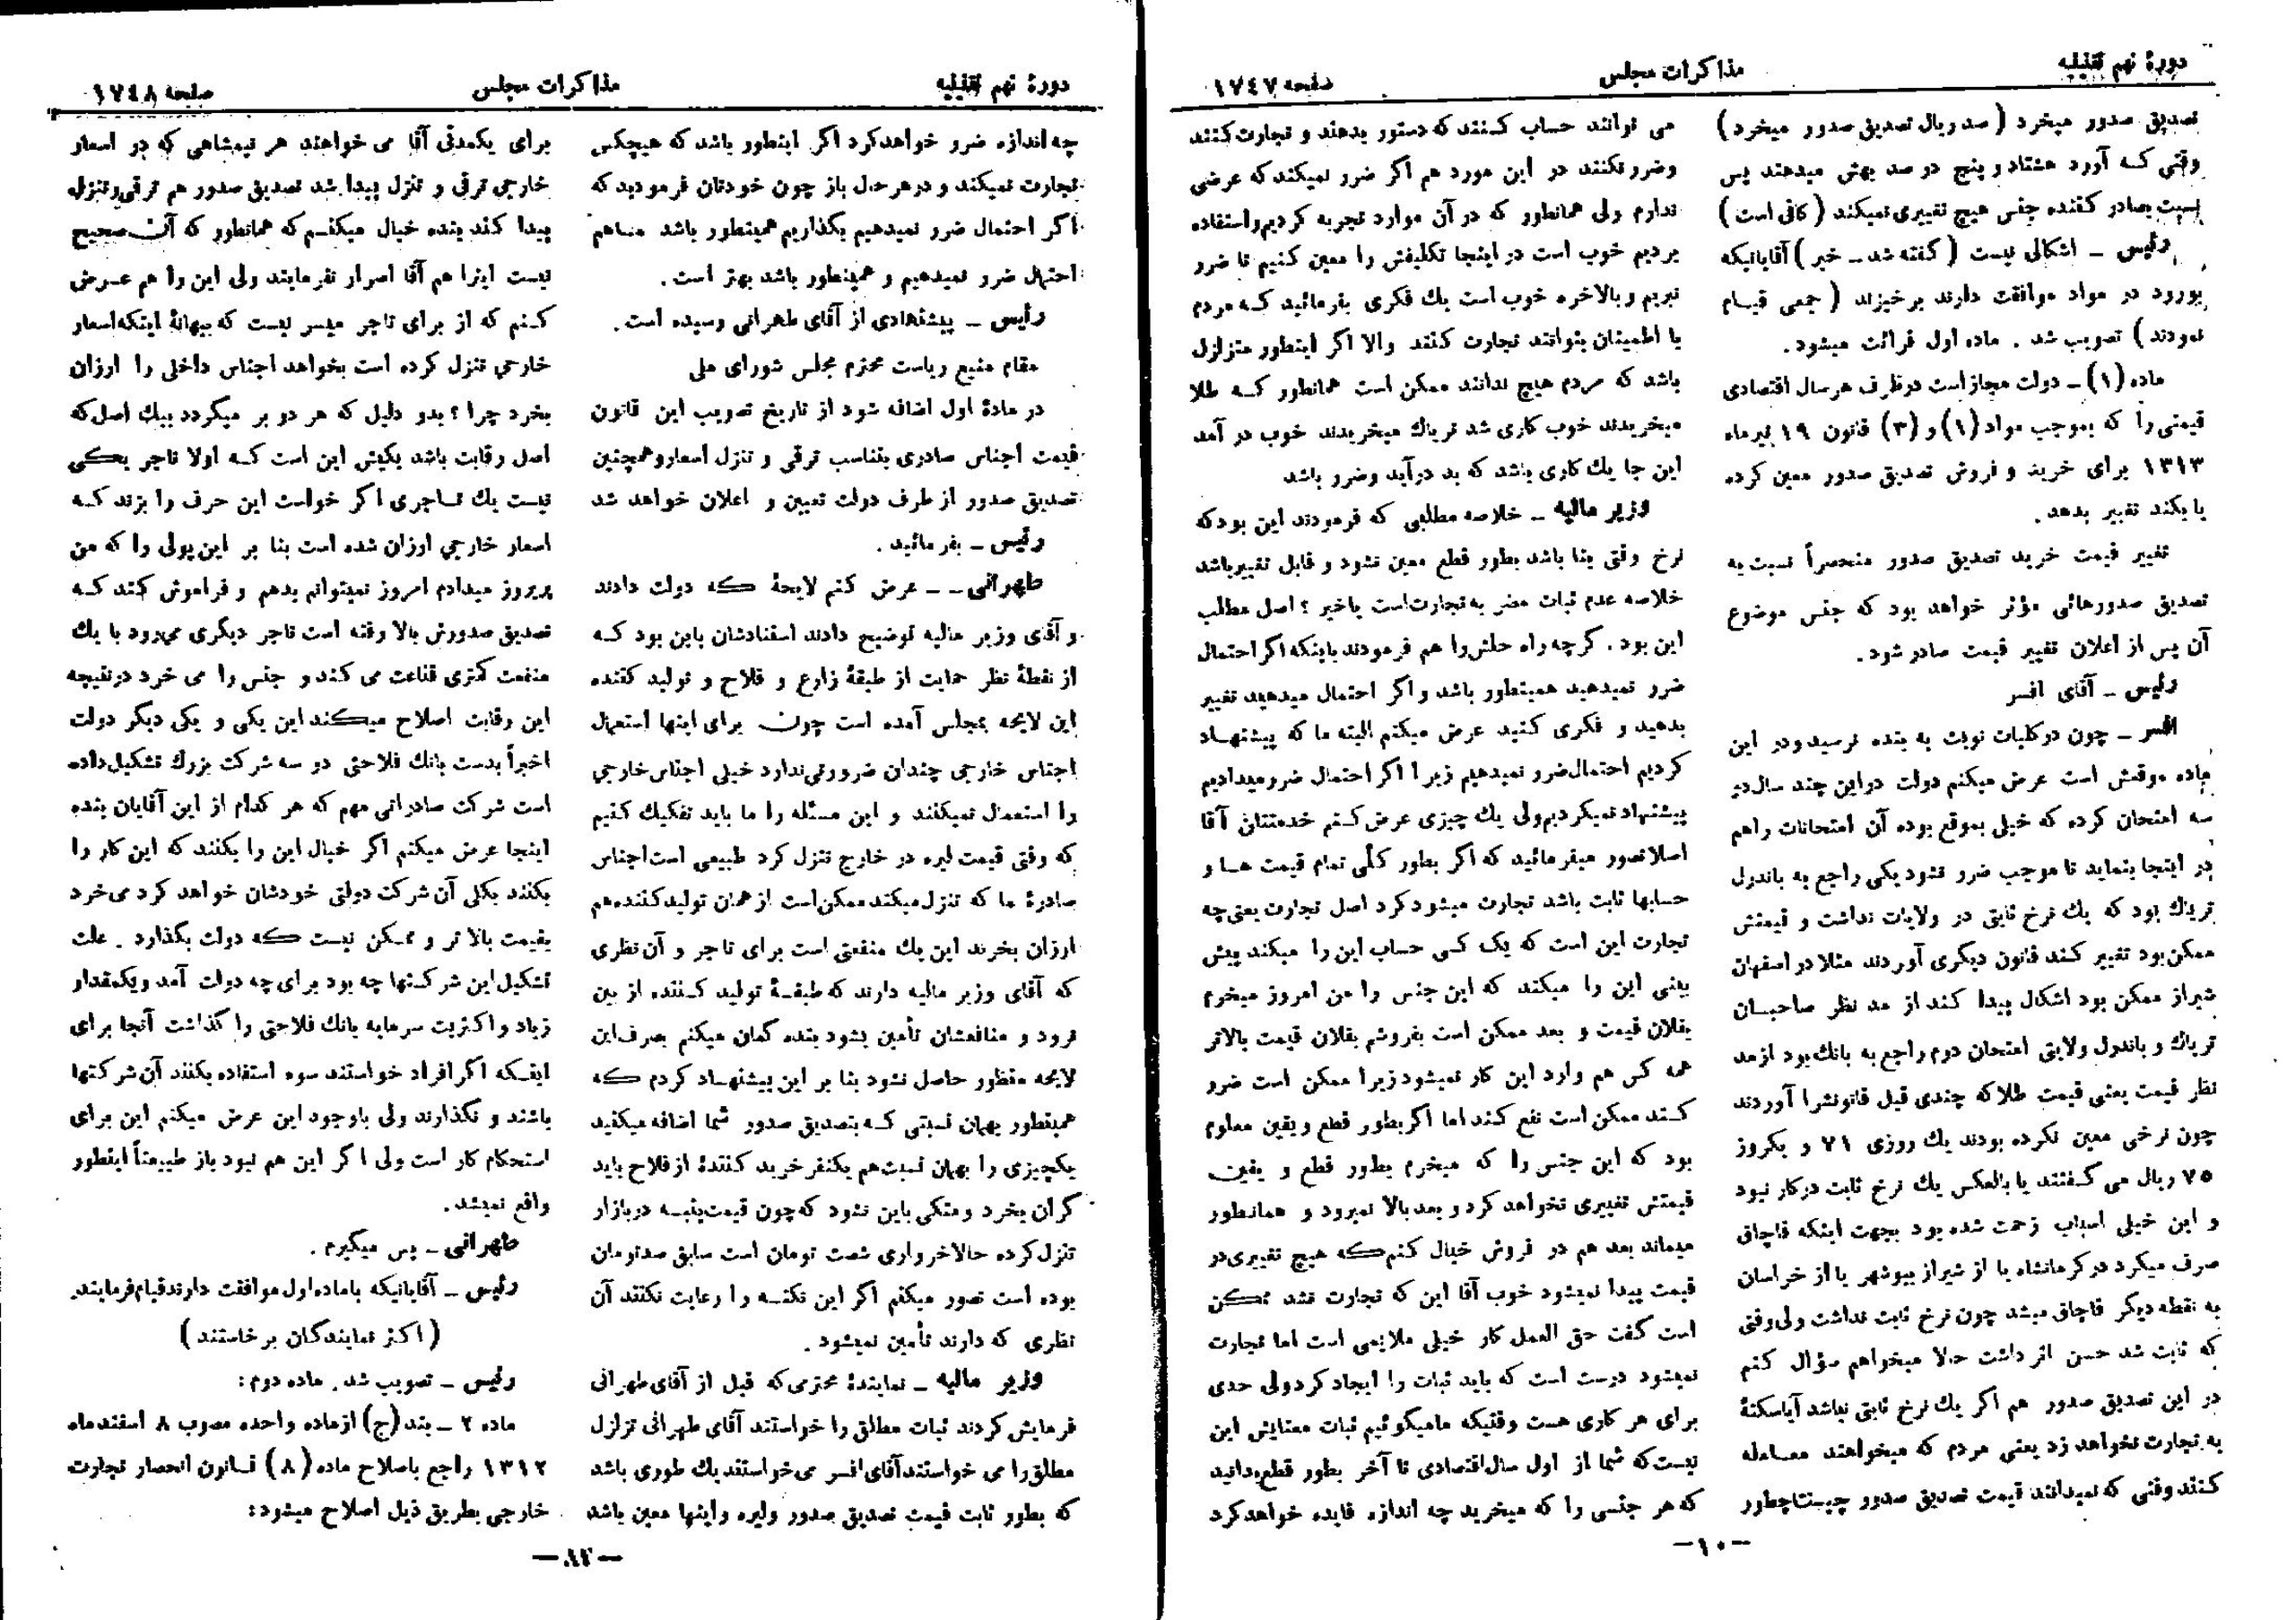 دورهٔ نهم تقنینیه
مذاکرات مجلس
صفحه ۱۷٤۷
تصدیق صدور میخرد (صد ریال تصدیق صدور میخرد)
وقتی که آورد هشتاد و پنج درصد بهش میدهند پس
نسبت بصادر کننده جنس هیچ تغییری نمیکند (کافی است)
رئیس ـ اشکالی نیست (گفته شد ـ خیر) آقایانیکه
بورود در مواد موافقت دارند برخیزند (جمعی قیام
نمودند) تصویب شد . ماده اول قرائت میشود.
ماده (۱) ـ دولت مجاز است در ظرف هر سال اقتصادی
قیمتی را که بموجب مواد (۱) و (۳) قانون ۱۹ تیرماه
۱۳۱۳ برای خرید و فروش تصدیق صدور معین کرده
یا بکند تغییر بدهد.
تغییر قیمت خرید تصدیق صدور منحصراً نسبت به
تصدیق صدورهائی مؤثر خواهد بود که جنس موضوع
آن پس از اعلان تغییر قیمت صادر شود.
رئیس ـ آقای افسر
افسر ـ چون در کلیات نوبت به بنده نرسید و در این
ماده موقعش است عرض میکنم دولت در این چند سال در
سه امتحان کرده که خیلی بموقع بوده آن امتحانات را هم
در اینجا بنماید تا موجب ضرر نشود یکی راجع به باندرل
تریاك بود که یك نرخ ثابتی در ولایات نداشت و قیمتش
ممکن بود تغییر کند قانون دیگری آوردند مثلا در اصفهان
شیراز ممکن بود اشکال پیدا کند از مد نظر صاحبان
تریاك و باندرل ولایتی امتحان دوم راجع به بانك بود از مد
نظر قیمت یعنی قیمت طلا که چندی قبل قانونش را آوردند
چون نرخی معین نکرده بودند یك روزی ۷۱ و یکروز
۷۵ ریال می گفتند یا بالعکس یك نرخ ثابت در کار نبود
و این خیلی اسباب زحمت شده بود بجهت اینکه قاچاق
صرف میکرد در کرمانشاه یا از شیراز ببوشهر یا از خراسان
به نقطه دیگر قاچاق میشد چون نرخ ثابت نداشت ولی وقتی
که ثابت شد حسن اثر داشت حالا میخواهم سؤال کنم
در این تصدیق صدور هم اگر یك نرخ ثابتی نباشد آیا سکتهٔ
به تجارت نخواهد زد یعنی مردم که میخواهند معامله
کنند وقتی که نمیدانند قیمت تصدیق صدور چیست چطور
می توانند حساب کنند که دستور بدهند و تجارت کنند
وضرر نکنند در این مورد هم اگر ضرر نمیکند که عرضی
ندارم ولی همانطور که در آن موارد تجربه کردیم و استفاده
بردیم خوب است در اینجا تکلیفش را معین کنیم تا ضرر
نبریم و بالاخره خوب است یك فکری بفرمائید که مردم
با اطمینان بتوانند تجارت کنند والا اگر اینطور متزلزل
باشد که مردم هیچ ندانند ممکن است همانطور که طلا
میخریدند خوب کاری شد تریاك میخریدند خوب در آمد
این جا یك کاری باشد که بد در آید وضرر باشد
وزیر مالیه ـ خلاصه مطلبی که فرمودند این بود که
نرخ وقتی بنا باشد بطور قطع معین نشود و قابل تغییر باشد
خلاصه عدم ثبات مضر به تجارت است یا خیر ؟ اصل مطلب
این بود . گرچه راه حلش را هم فرمودند باینکه اگر احتمال
ضرر نمیدهید همینطور باشد و اگر احتمال میدهید تغییر
بدهید و فکری کنید عرض میکنم البته ما که پیشنهاد
کردیم احتمال ضرر نمیدهیم زیرا اگر احتمال ضرر میدادیم
پیشنهاد نمیکردیم ولی یك چیزی عرض کنم خدمتتان آقا
اصلا تصور میفرمائید که اگر بطور کلی تمام قیمت ها و
حسابها ثابت باشد تجارت میشود کرد اصل تجارت یعنی چه
تجارت این است که یك کسی حساب این را میکند پیش
بینی این را میکند که این جنس را من امروز میخرم
بفلان قیمت و بعد ممکن است بفروشم بفلان قیمت بالاتر
همه کس هم وارد این کار نمیشود زیرا ممکن است ضرر
کند ممکن است نفع کند اما اگر بطور قطع و یقین معلوم
بود که این جنس را که میخرم بطور قطع و یقین
قیمتش تغییری نخواهد کرد و بعد بالا نمیرود و همانطور
میماند بعد هم در فروش خیال کنم که هیچ تغییری در
قیمت پیدا نمیشود خوب آقا این که تجارت نشد ممکن
است گفت حق العمل کار خیلی ملایمی است اما تجارت
نمیشود درست است که باید ثبات را ایجاد کرد ولی حدی
برای هر کاری هست وقتیکه ما میگوئیم ثبات معنایش این
نیست که شما از اول سال اقتصادی تا آخر بطور قطع بدانید
که هر جنسی را که میخرید چه اندازه فایده خواهد کرد
ـ ۱۰ ـ
دورهٔ نهم تقنینیه
مذاکرات مجلس
صفحه ۱۷٤۸
چه اندازه ضرر خواهد کرد اگر اینطور باشد که هیچکس
تجارت نمیکند و در هر حال باز چون خودتان فرمودید که
اگر احتمال ضرر نمیدهیم بگذاریم همینطور باشد ما هم
احتمال ضرر نمیدهیم و همینطور باشد بهتر است.
رئیس ـ پیشنهادی از آقای طهرانی رسیده است.
مقام منیع ریاست محترم مجلس شورای ملی
در مادهٔ اول اضافه شود از تاریخ تصویب این قانون
قیمت اجناس صادری بتناسب ترقی و تنزل اسعار و همچنین
تصدیق صدور از طرف دولت تعیین و اعلان خواهد شد
رئیس ـ بفرمائید.
طهرانی ـ ـ عرض کنم لایحهٔ که دولت دادند
و آقای وزیر مالیه توضیح دادند استنادشان باین بود که
از نقطهٔ نظر حمایت از طبقهٔ زارع و فلاح و تولید کننده
این لایحه بمجلس آمده است چون برای اینها استعمال
اجناس خارجی چندان ضرورتی ندارد خیلی اجناس خارجی
را استعمال نمیکنند و این مسئله را ما باید تفکیك کنیم
که وقتی قیمت لیره در خارج تنزل کرد طبیعی است اجناس
صادرهٔ ما که تنزل میکند ممکن است از همان تولید کننده هم
ارزان بخرند این یك منفعتی است برای تاجر و آن نظری
که آقای وزیر مالیه دارند که طبقهٔ تولید کننده از بین
نرود و منافعشان تأمین بشود بنده گمان میکنم بصرف این
لایحه منظور حاصل نشود بنا بر این پیشنهاد کردم که
همینطور بهمان نسبتی که بتصدیق صدور شما اضافه میکنید
یکچیزی را بهمان نسبت هم یکنفر خرید کنندهٔ از فلاح باید
گران بخرد و متکی باین نشود که چون قیمت پنبه در بازار
تنزل کرده حالا خرواری شصت تومان است سابق صد تومان
بوده است تصور میکنم اگر این نکته را رعایت نکنند آن
نظری که دارند تأمین نمیشود.
وزیر مالیه ـ نمایندهٔ محترمی که قبل از آقای طهرانی
فرمایش کردند ثبات مطلق را خواستند آقای طهرانی تزلزل
مطلق را می خواستند آقای افسر می خواستند یك طوری باشد
که بطور ثابت قیمت تصدیق صدور و لیره و اینها معین باشد
برای یکمدتی آقا می خواهند هر نیمشاهی که در اسعار
خارجی ترقی و تنزل پیدا شد تصدیق صدور هم ترقی و تنزل
پیدا کند بنده خیال میکنم که همانطور که آن صحیح
نیست اینرا هم آقا اصرار نفرمایند ولی این را هم عرض
کنم که از برای تاجر میسر نیست که ببهانهٔ اینکه اسعار
خارجی تنزل کرده است بخواهد اجناس داخلی را ارزان
بخرد چرا ؟ بدو دلیل که هر دو بر میگردد بیك اصل که
اصل رقابت باشد یکیش این است که اولا تاجر یکی
نیست یك تاجری اگر خواست این حرف را بزند که
اسعار خارجی ارزان شده است بنا بر این پولی را که من
پریروز میدادم امروز نمیتوانم بدهم و فراموش کند که
تصدیق صدورش بالا رفته است تاجر دیگری میرود با یك
منفعت کمتری قناعت می کند و جنس را می خرد در نتیجه
این رقابت اصلاح میکند این یکی و یکی دیگر دولت
اخیراً بدست بانك فلاحتی دو سه شرکت بزرك تشکیل داده
است شرکت صادراتی مهم که هر کدام از این آقایان بنده
اینجا عرض میکنم اگر خیال این را بکنند که این کار را
بکنند بکلی آن شرکت دولتی خودشان خواهد کرد می خرد
بقیمت بالا تر و ممکن نیست که دولت بگذارد . علت
تشکیل این شرکتها چه بود برای چه دولت آمد و یکمقدار
زیاد و اکثریت سرمایه بانك فلاحتی را گذاشت آنجا برای
اینکه اگر افراد خواستند سوء استفاده بکنند آن شرکتها
باشند و نگذارند ولی باوجود این عرض میکنم این برای
استحکام کار است ولی اگر این هم نبود باز طبیعتاً اینطور
واقع نمیشد.
طهرانی ـ پس میگیرم.
رئیس ـ آقایانیکه با ماده اول موافقت دارند قیام فرمایند.
(اکثر نمایندگان برخاستند)
رئیس ـ تصویب شد . ماده دوم :
ماده ۲ ـ بند (ج) از ماده واحده مصوب ۸ اسفند ماه
۱۳۱۲ راجع باصلاح ماده (۸) قانون انحصار تجارت
خارجی بطریق ذیل اصلاح میشود :